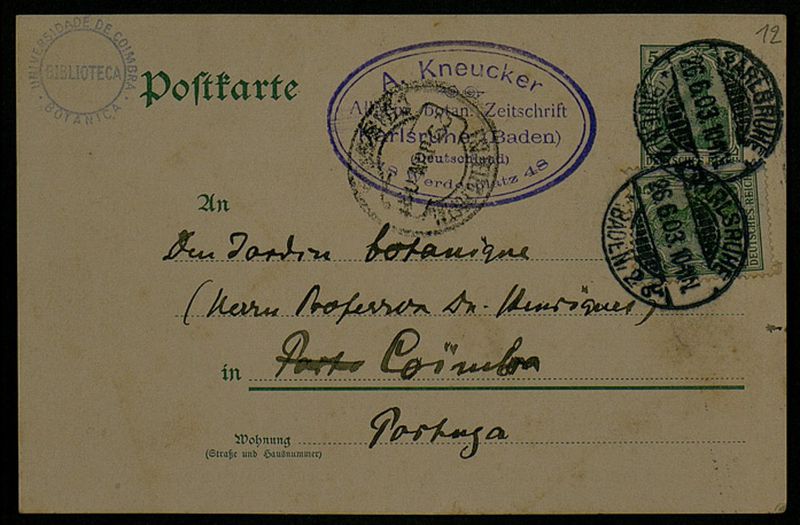 12
UNIVERSIDADE DE COIMBRA
BIBLIOTECA
BOTANICA
Postkarte
A. Kneucker
Allgem. botan. Zeitschrift
Karlsruhe (Baden)
(Deutschland)
Werderplatz 48
5
DEUTSCHES REICH
KARLSRUHE
26.6.03. 10-11N.
(BADEN)
DEUTSCHES REICH
KARLSRUHE
26.6.03. 10-11N.
(BADEN) 2
An
Den Jardin botanique
(Herrn Professor Dr. Henriques)
in Porto Coïmbra
Portuga
Wohnung
(Straße und Hausnummer)